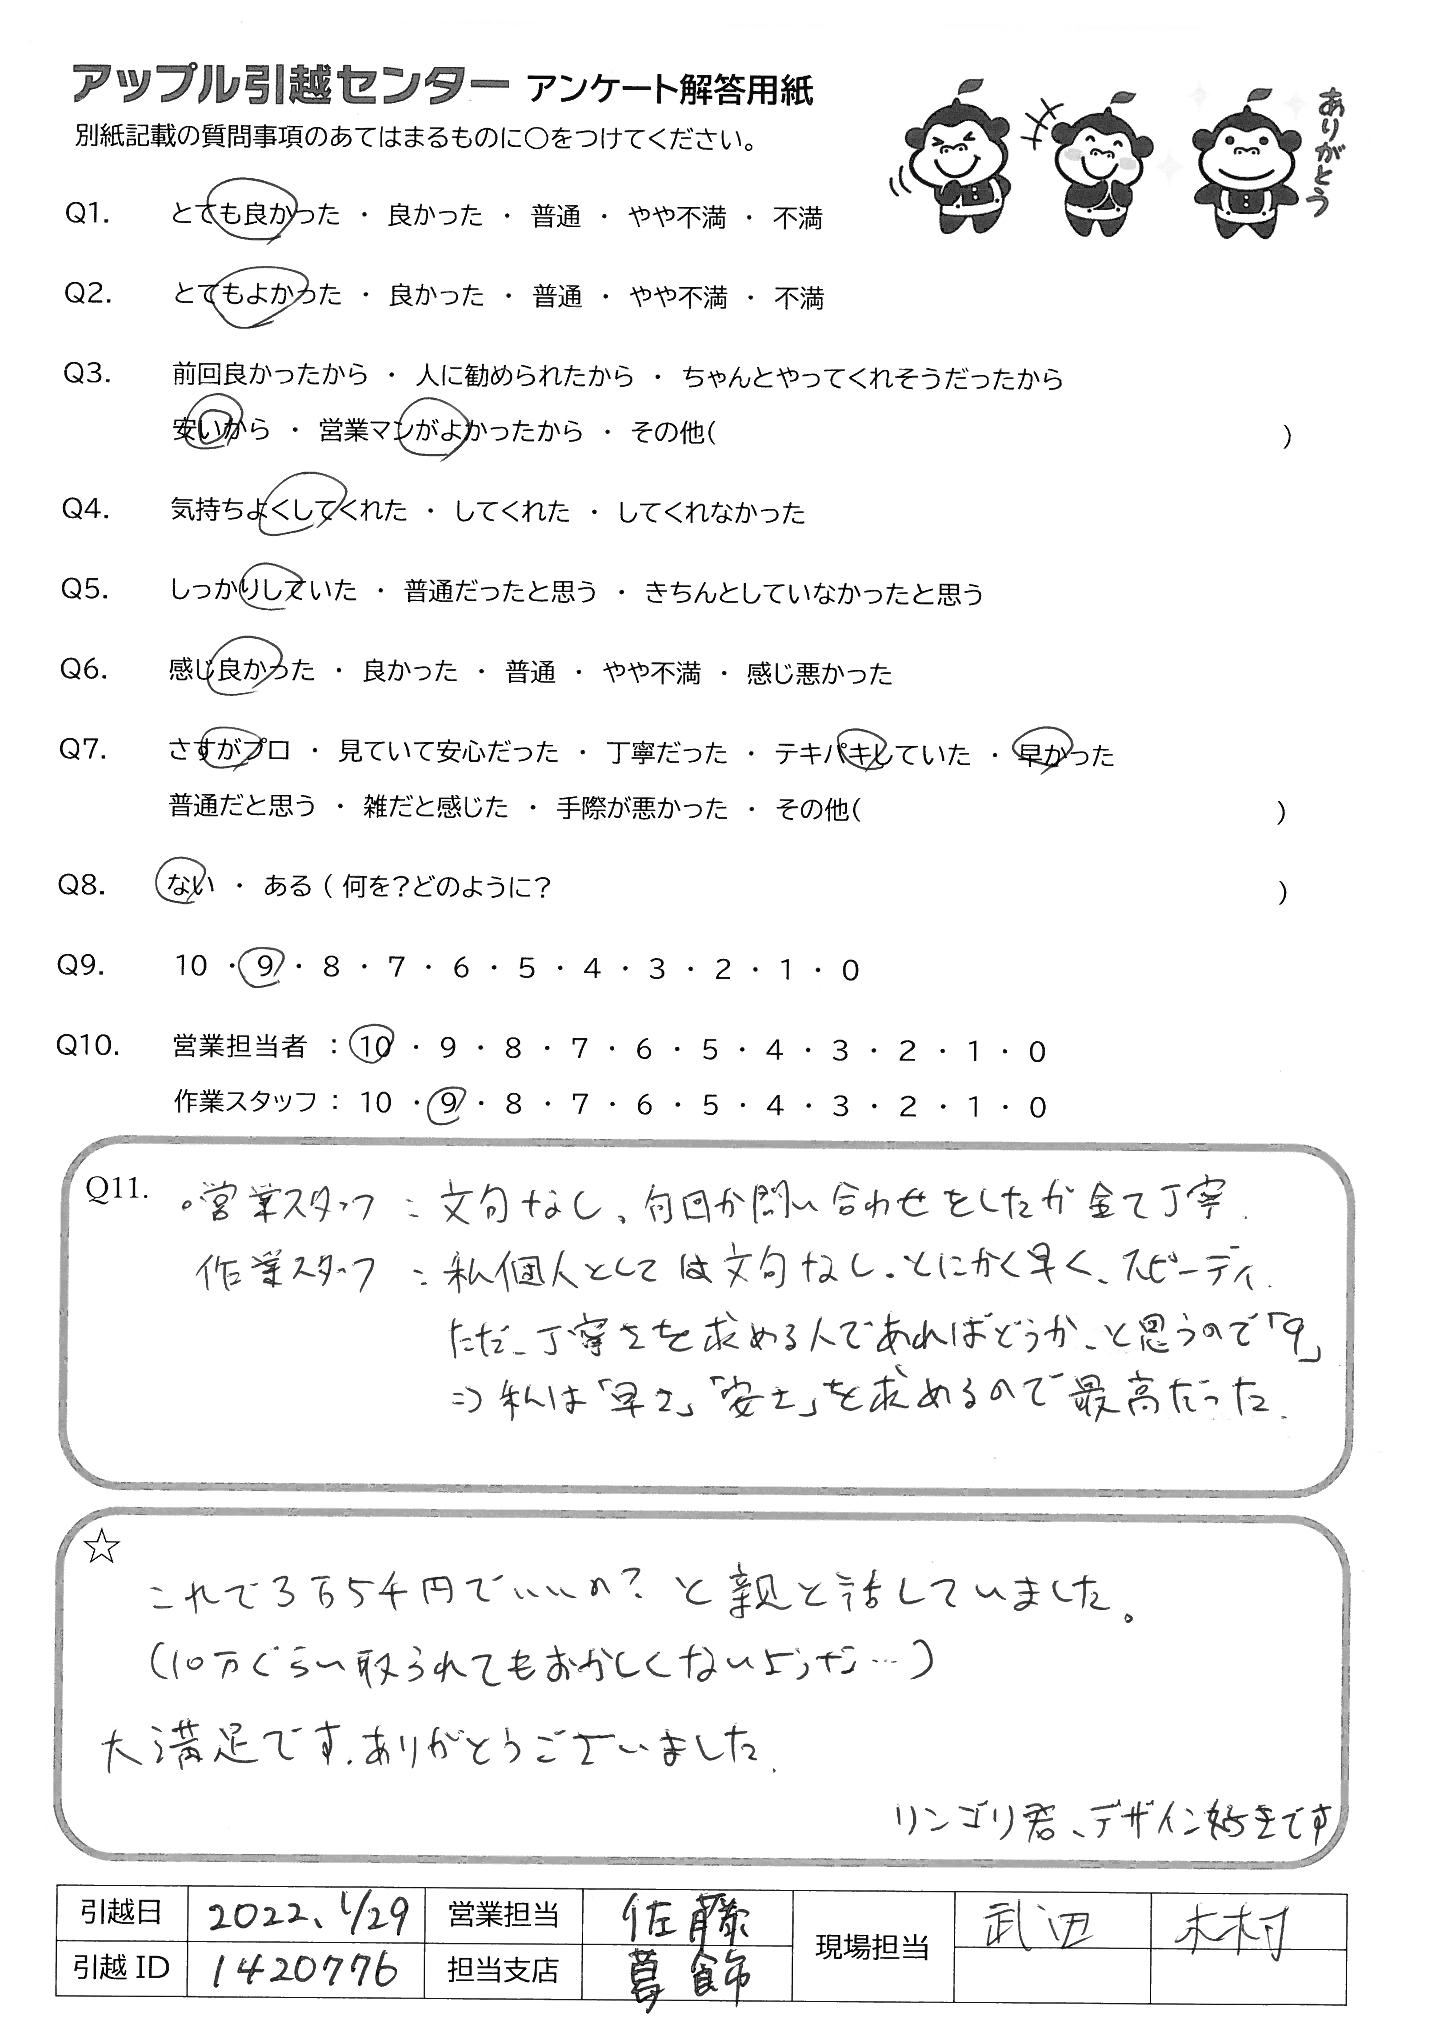 アップル引越センター アンケート解答用紙
ありがとう
別紙記載の質問事項のあてはまるものに○をつけてください。
Q1. とても良かった ・ 良かった ・ 普通 ・ やや不満 ・ 不満
Q2. とてもよかった ・ 良かった ・ 普通 ・ やや不満 ・ 不満
Q3. 前回良かったから ・ 人に勧められたから ・ ちゃんとやってくれそうだったから
安いから ・ 営業マンがよかったから ・ その他( )
Q4. 気持ちよくしてくれた ・ してくれた ・ してくれなかった
Q5. しっかりしていた ・ 普通だったと思う ・ きちんとしていなかったと思う
Q6. 感じ良かった ・ 良かった ・ 普通 ・ やや不満 ・ 感じ悪かった
Q7. さすがプロ ・ 見ていて安心だった ・ 丁寧だった ・ テキパキしていた ・ 早かった
普通だと思う ・ 雑だと感じた ・ 手際が悪かった ・ その他( )
Q8. ない ・ ある ( 何を?どのように? )
Q9. 10 ・ 9 ・ 8 ・ 7 ・ 6 ・ 5 ・ 4 ・ 3 ・ 2 ・ 1 ・ 0
Q10. 営業担当者 : 10 ・ 9 ・ 8 ・ 7 ・ 6 ・ 5 ・ 4 ・ 3 ・ 2 ・ 1 ・ 0
作業スタッフ : 10 ・ 9 ・ 8 ・ 7 ・ 6 ・ 5 ・ 4 ・ 3 ・ 2 ・ 1 ・ 0
Q11. 。営業スタッフ : 文句なし、何回か問い合わせをしたが全て丁寧.
作業スタッフ : 私個人としては文句なし。とにかく早く、スピーディ.
ただ、丁寧さを求める人であればどうか、と思うので「9」
⇒ 私は「早さ」「安さ」を求めるので最高だった.
☆
これで3万5千円でいいの? と親と話していました。
(10万ぐらい取られてもおかしくないような…)
大満足です.ありがとうございました.
リンゴリ君、デザイン好きです
引越日 2022、1/29 営業担当 佐藤 現場担当 武辺 木村
引越ID 1420776 担当支店 葛飾